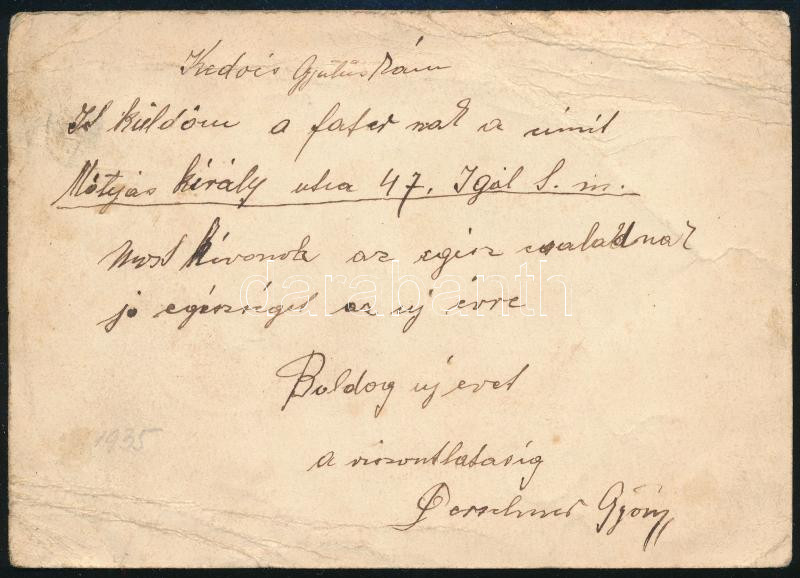 Kedves Gyuluskám
It küldöm a fater nak a cimit
Mátyás király utca 47. Igal S. m.
Most kivanok az egész családnak
jo egészséget az uj évre
Boldog uj evet
a viszontlatasig
1935
György
darabanth